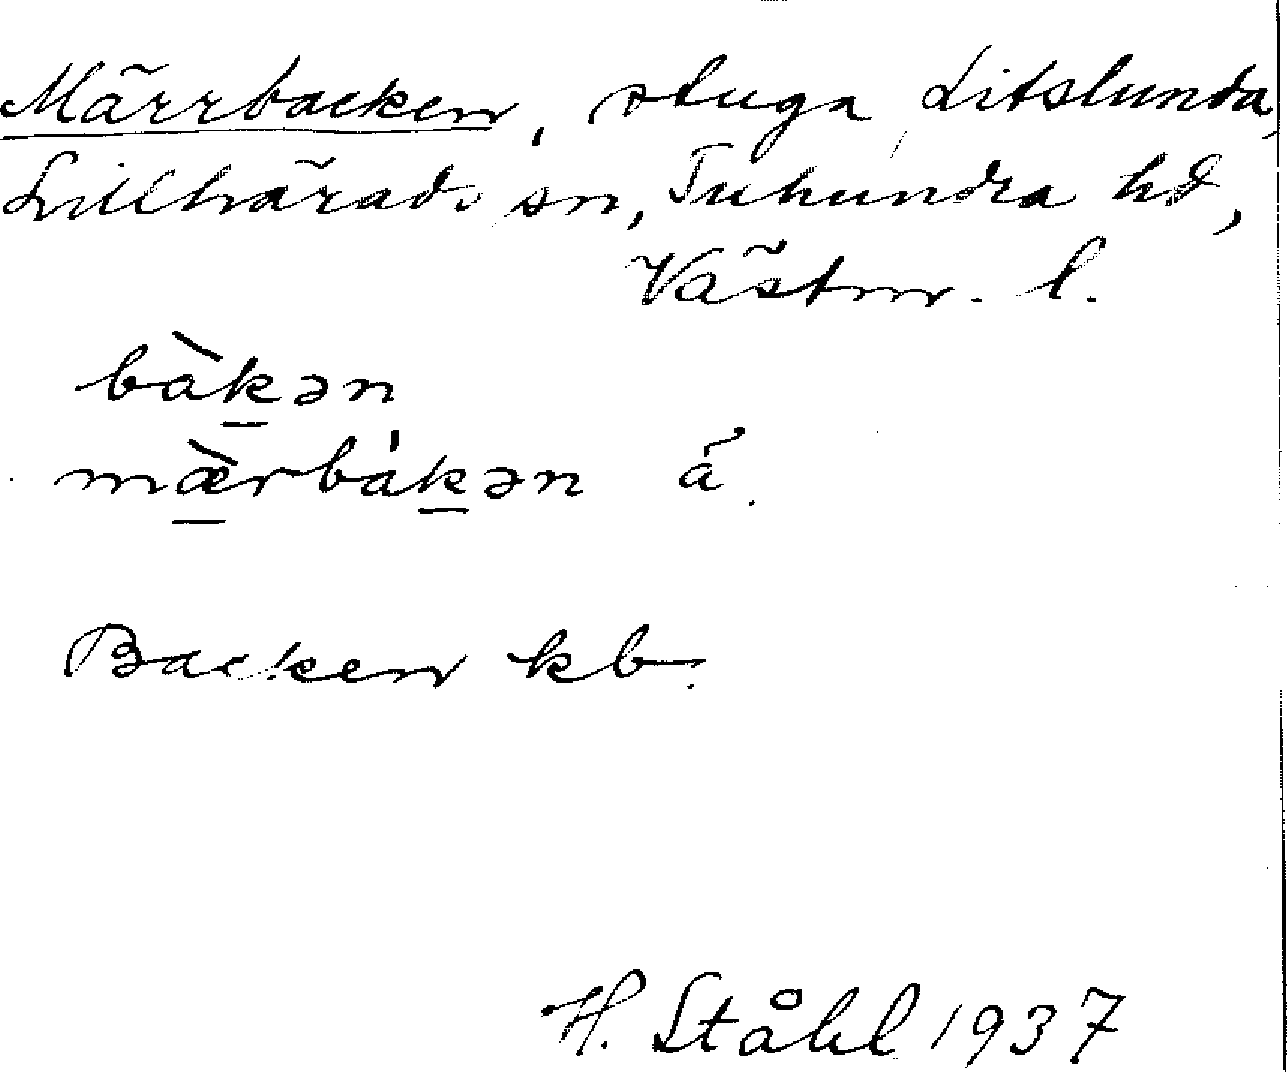 Märrbacken, stuga, Litslunda,
Lillhärads sn, Tuhundra hd,
Västm. l.
bàk̲ən
mæ̲̀rbák̲ən ä.
Backen kb.
H. Ståhl 1937